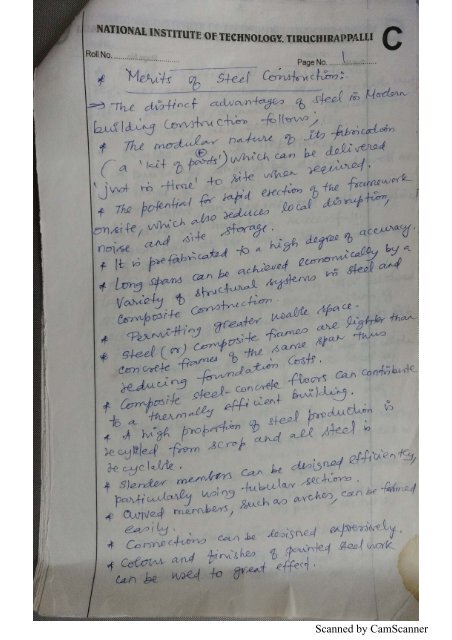 NATIONAL INSTITUTE OF TECHNOLOGY, TIRUCHIRAPPALLI C
Roll No.
Page No. 1
* Merits of Steel Construction:
→ The distinct advantages of steel in Modern
building Construction follows;
* The modular nature of its fabrication
(a 'kit of parts') which can be delivered
'just in time' to site when required.
* The potential for rapid erection of the framework
onsite, which also reduces local disruption,
noise and site storage.
* It is prefabricated to a high degree of accuracy.
* Long spans can be achieved economically by a
variety of structural systems in steel and
composite construction.
* Permitting greater usable space.
* Steel (or) Composite frames are lighter than
concrete frames of the same span thus
reducing foundation costs.
* Composite steel-concrete floors can contribute
to a thermally efficient building.
* A high proportion of steel production is
recycled from scrap and all steel is
recyclable.
* Slender members can be designed efficiently,
particularly using tubular sections.
* Curved members, such as arches, can be formed
easily.
* Connections can be designed expressively.
* Colour and finishes of painted steel work
can be used to great effect.
Scanned by CamScanner